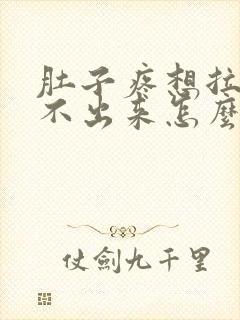 肚子疼想拉
不出来怎麼
仗劍九千里